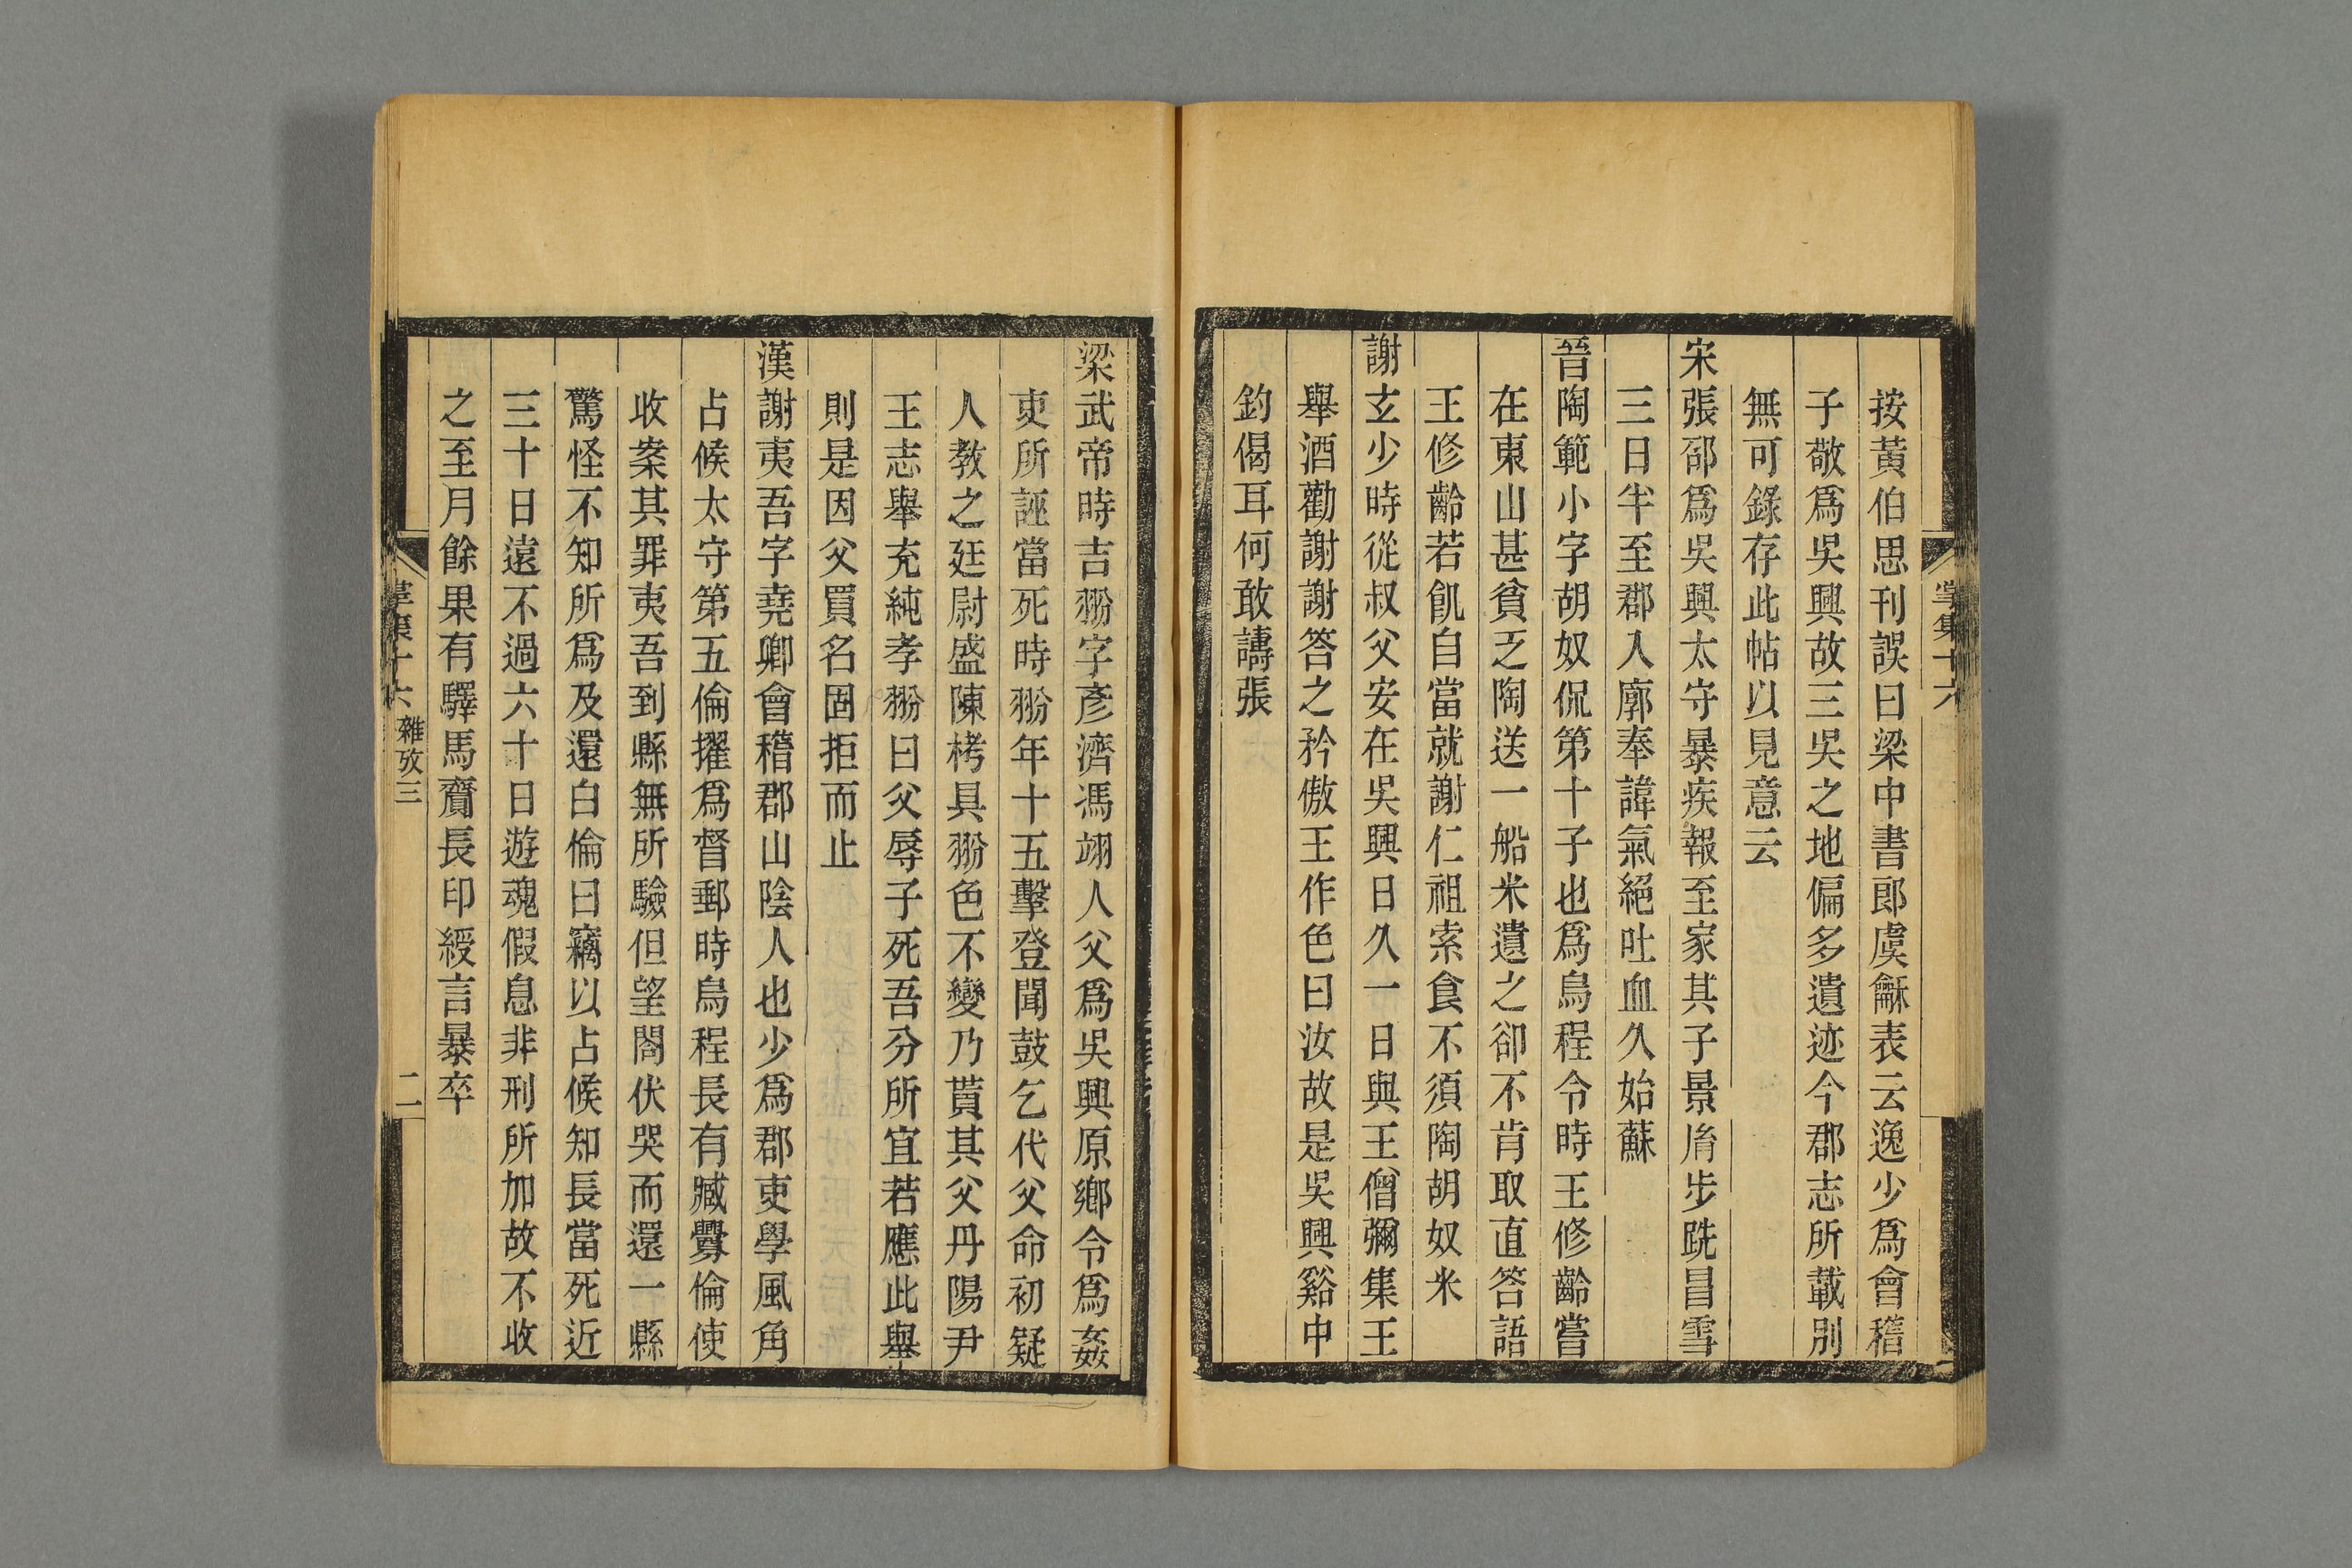 按黃伯思刊誤曰梁中書郎虞龢表云逸少爲會稽
子敬爲吳興故三吳之地偏多遺迹今郡志所載別
無可錄存此帖以見意云
宋張邵爲吳興太守暴疾報至家其子景胤步跣冒雪
三日半至郡入廓奉諱氣絕吐血久始蘇
晉陶範小字胡奴侃第十子也爲烏程令時王修齡嘗
在東山甚貧乏陶送一船米遺之卻不肯取直答語
王修齡若飢自當就謝仁祖索食不須陶胡奴米
謝玄少時從叔父安在吳興日久一日與王僧彌集王
舉酒勸謝謝答之矜傲王作色曰汝故是吳興谿中
釣偈耳何敢譸張
梁武帝時吉翂字彥濟馮翊人父爲吳興原鄉令爲姦
吏所誣當死時翂年十五擊登聞鼓乞代父命初疑
人教之廷尉盛陳栲具翂色不變乃貰其父丹陽尹
王志舉充純孝翂曰父辱子死吾分所宜若應此舉
則是因父買名固拒而止
漢謝夷吾字堯卿會稽郡山陰人也少爲郡吏學風角
占候太守第五倫擢爲督郵時烏程長有臧釁倫使
收案其罪夷吾到縣無所驗但望閤伏哭而還一縣
驚怪不知所爲及還白倫曰竊以占候知長當死近
三十日遠不過六十日遊魂假息非刑所加故不收
之至月餘果有驛馬齎長印綬言暴卒
集十六 雜攷三 二